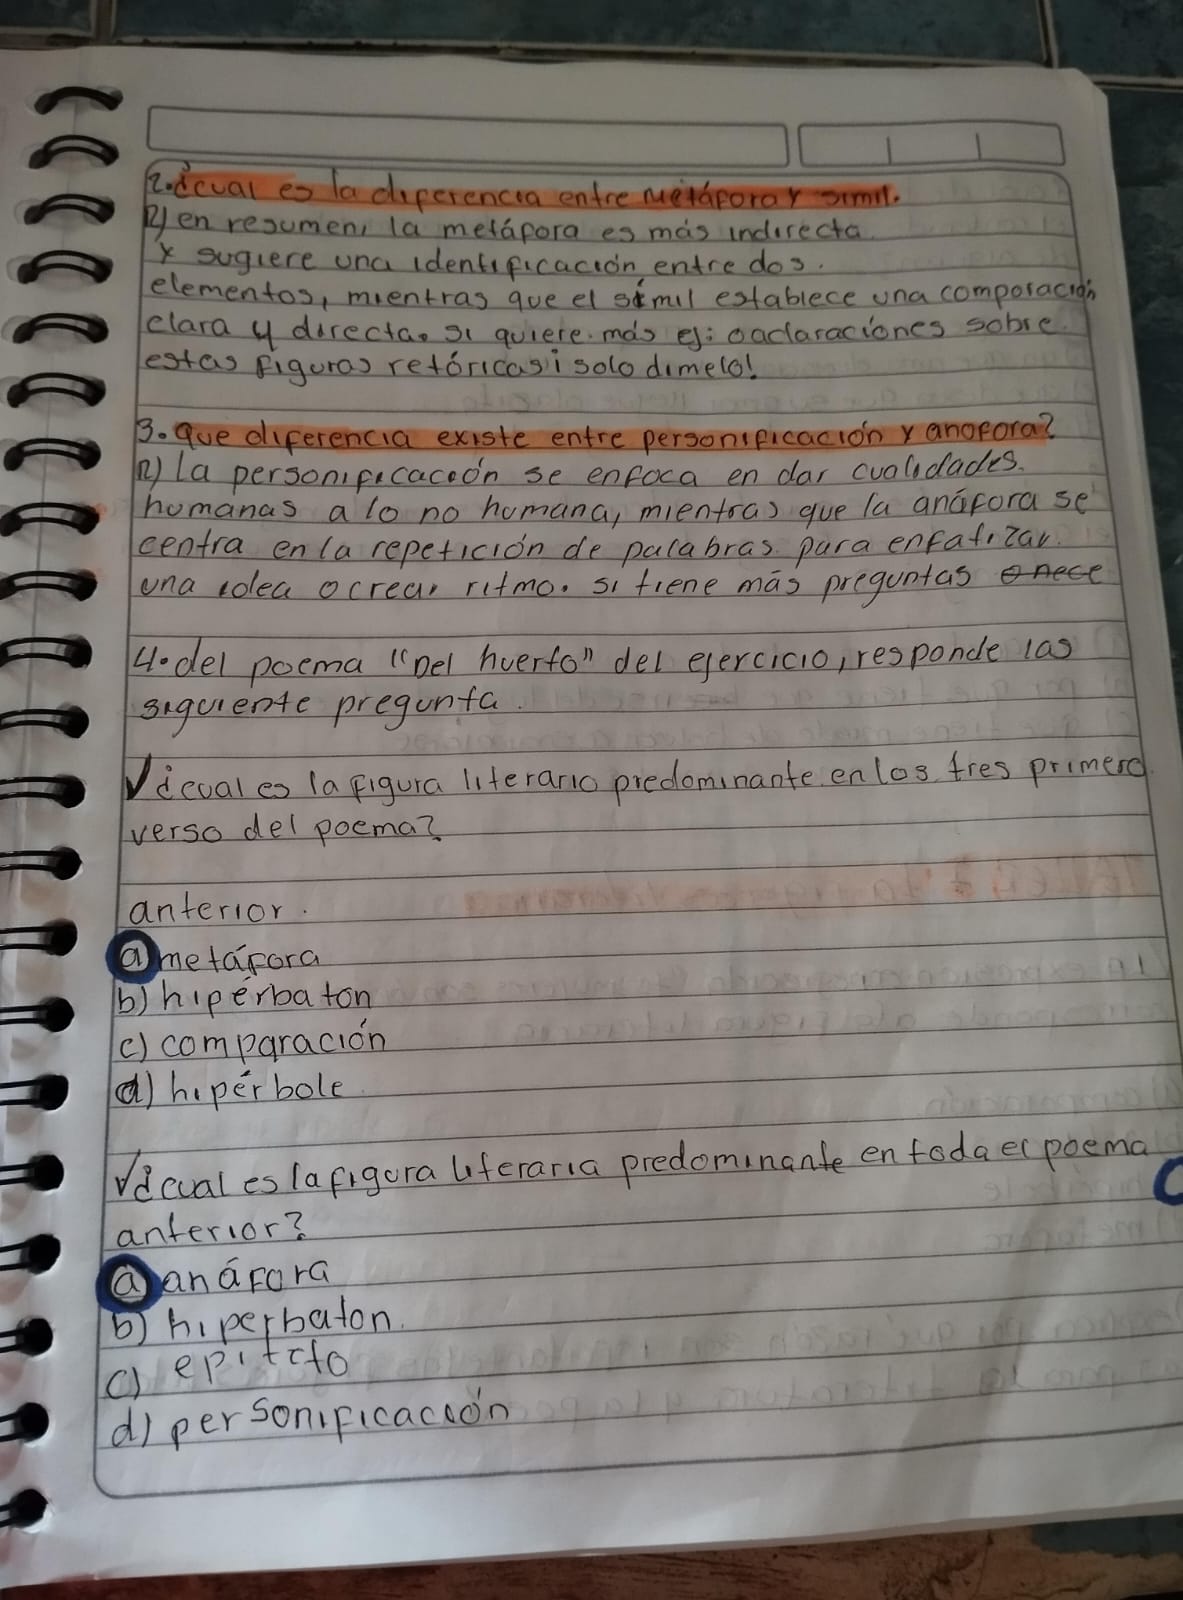 2. ¿cual es la diferencia entre metáfora y simil.
R) en resumen, la metáfora es más indirecta
y sugiere una identificación entre dos.
elementos, mientras que el símil establece una comparación
clara y directa. si quiere más ej: oaclaraciones sobre
estas figuras retóricas ¡ solo dimelo!
3. que diferencia existe entre personificación y anofora?
R) la personificación se enfoca en dar cualidades.
humanas a lo no humana, mientras que la anáfora se
centra en la repetición de palabras para enfatizar.
una idea o crear ritmo. si tiene más preguntas
4. del poema "Del huerto" del ejercicio, responde las
siguiente pregunta.
√ ¿cual es la figura literario predominante en los tres primero
verso del poema?
anterior.
a) metáfora
b) hipérbaton
c) comparación
d) hipérbole
√ ¿cual es la figura literaria predominante en toda el poema
anterior?
a) anáfora
b) hiperbaton.
c) epiteto
d) personificación